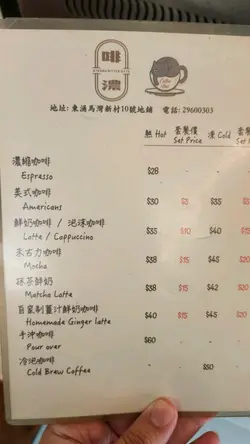 啡濃
Coffee
地址: 東涌馬灣新村10號地舖 電話: 29600303
熱 Hot 套餐價 Set Price 凍 Cold 套餐 Set P
濃縮咖啡
Espresso $28
美式咖啡
Americans $30 $5 $35 $5
鮮奶咖啡 / 泡沫咖啡
Latte / Cappuccino $35 $10 $40 $15
朱古力咖啡
Mocha $38 $15 $45 $20
抹茶鮮奶
Matcha Latte $38 $15 $42 $20
自家制薑汁鮮奶咖啡
Homemade Ginger latte $40 $15 $45 $20
手沖咖啡
Pour over $60
冷泡咖啡
Cold Brew Coffee $50